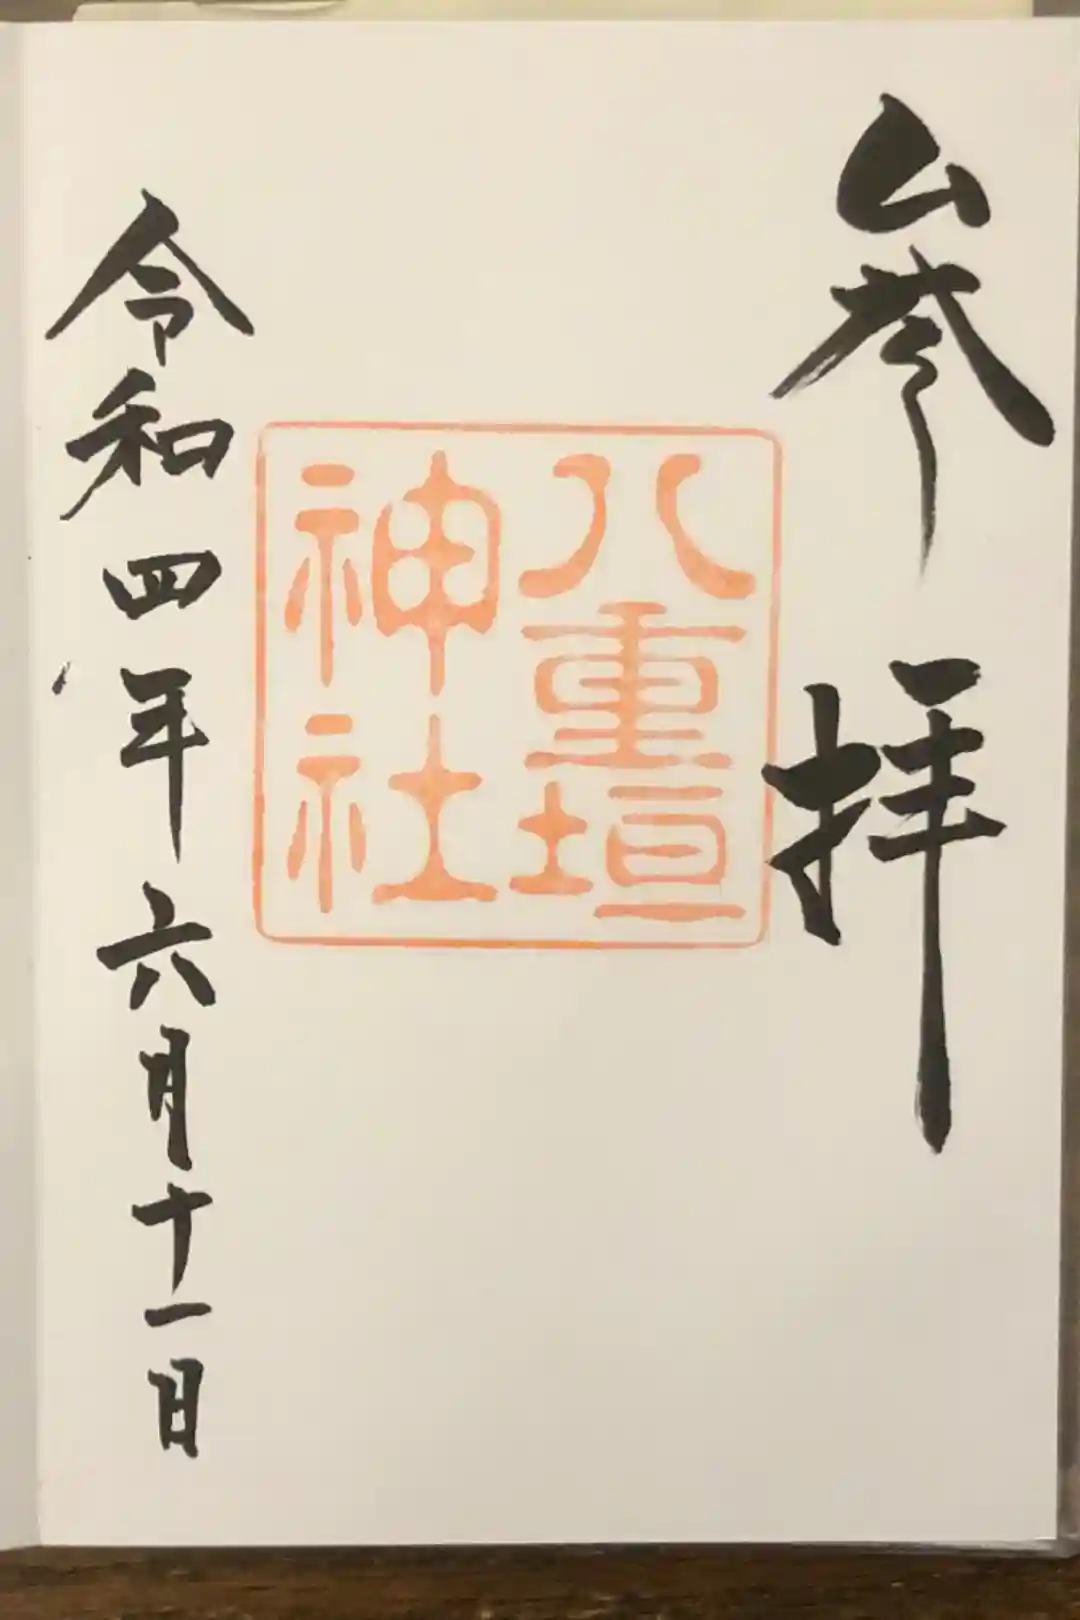 参拝
八重垣
神社
令和四年六月十一日